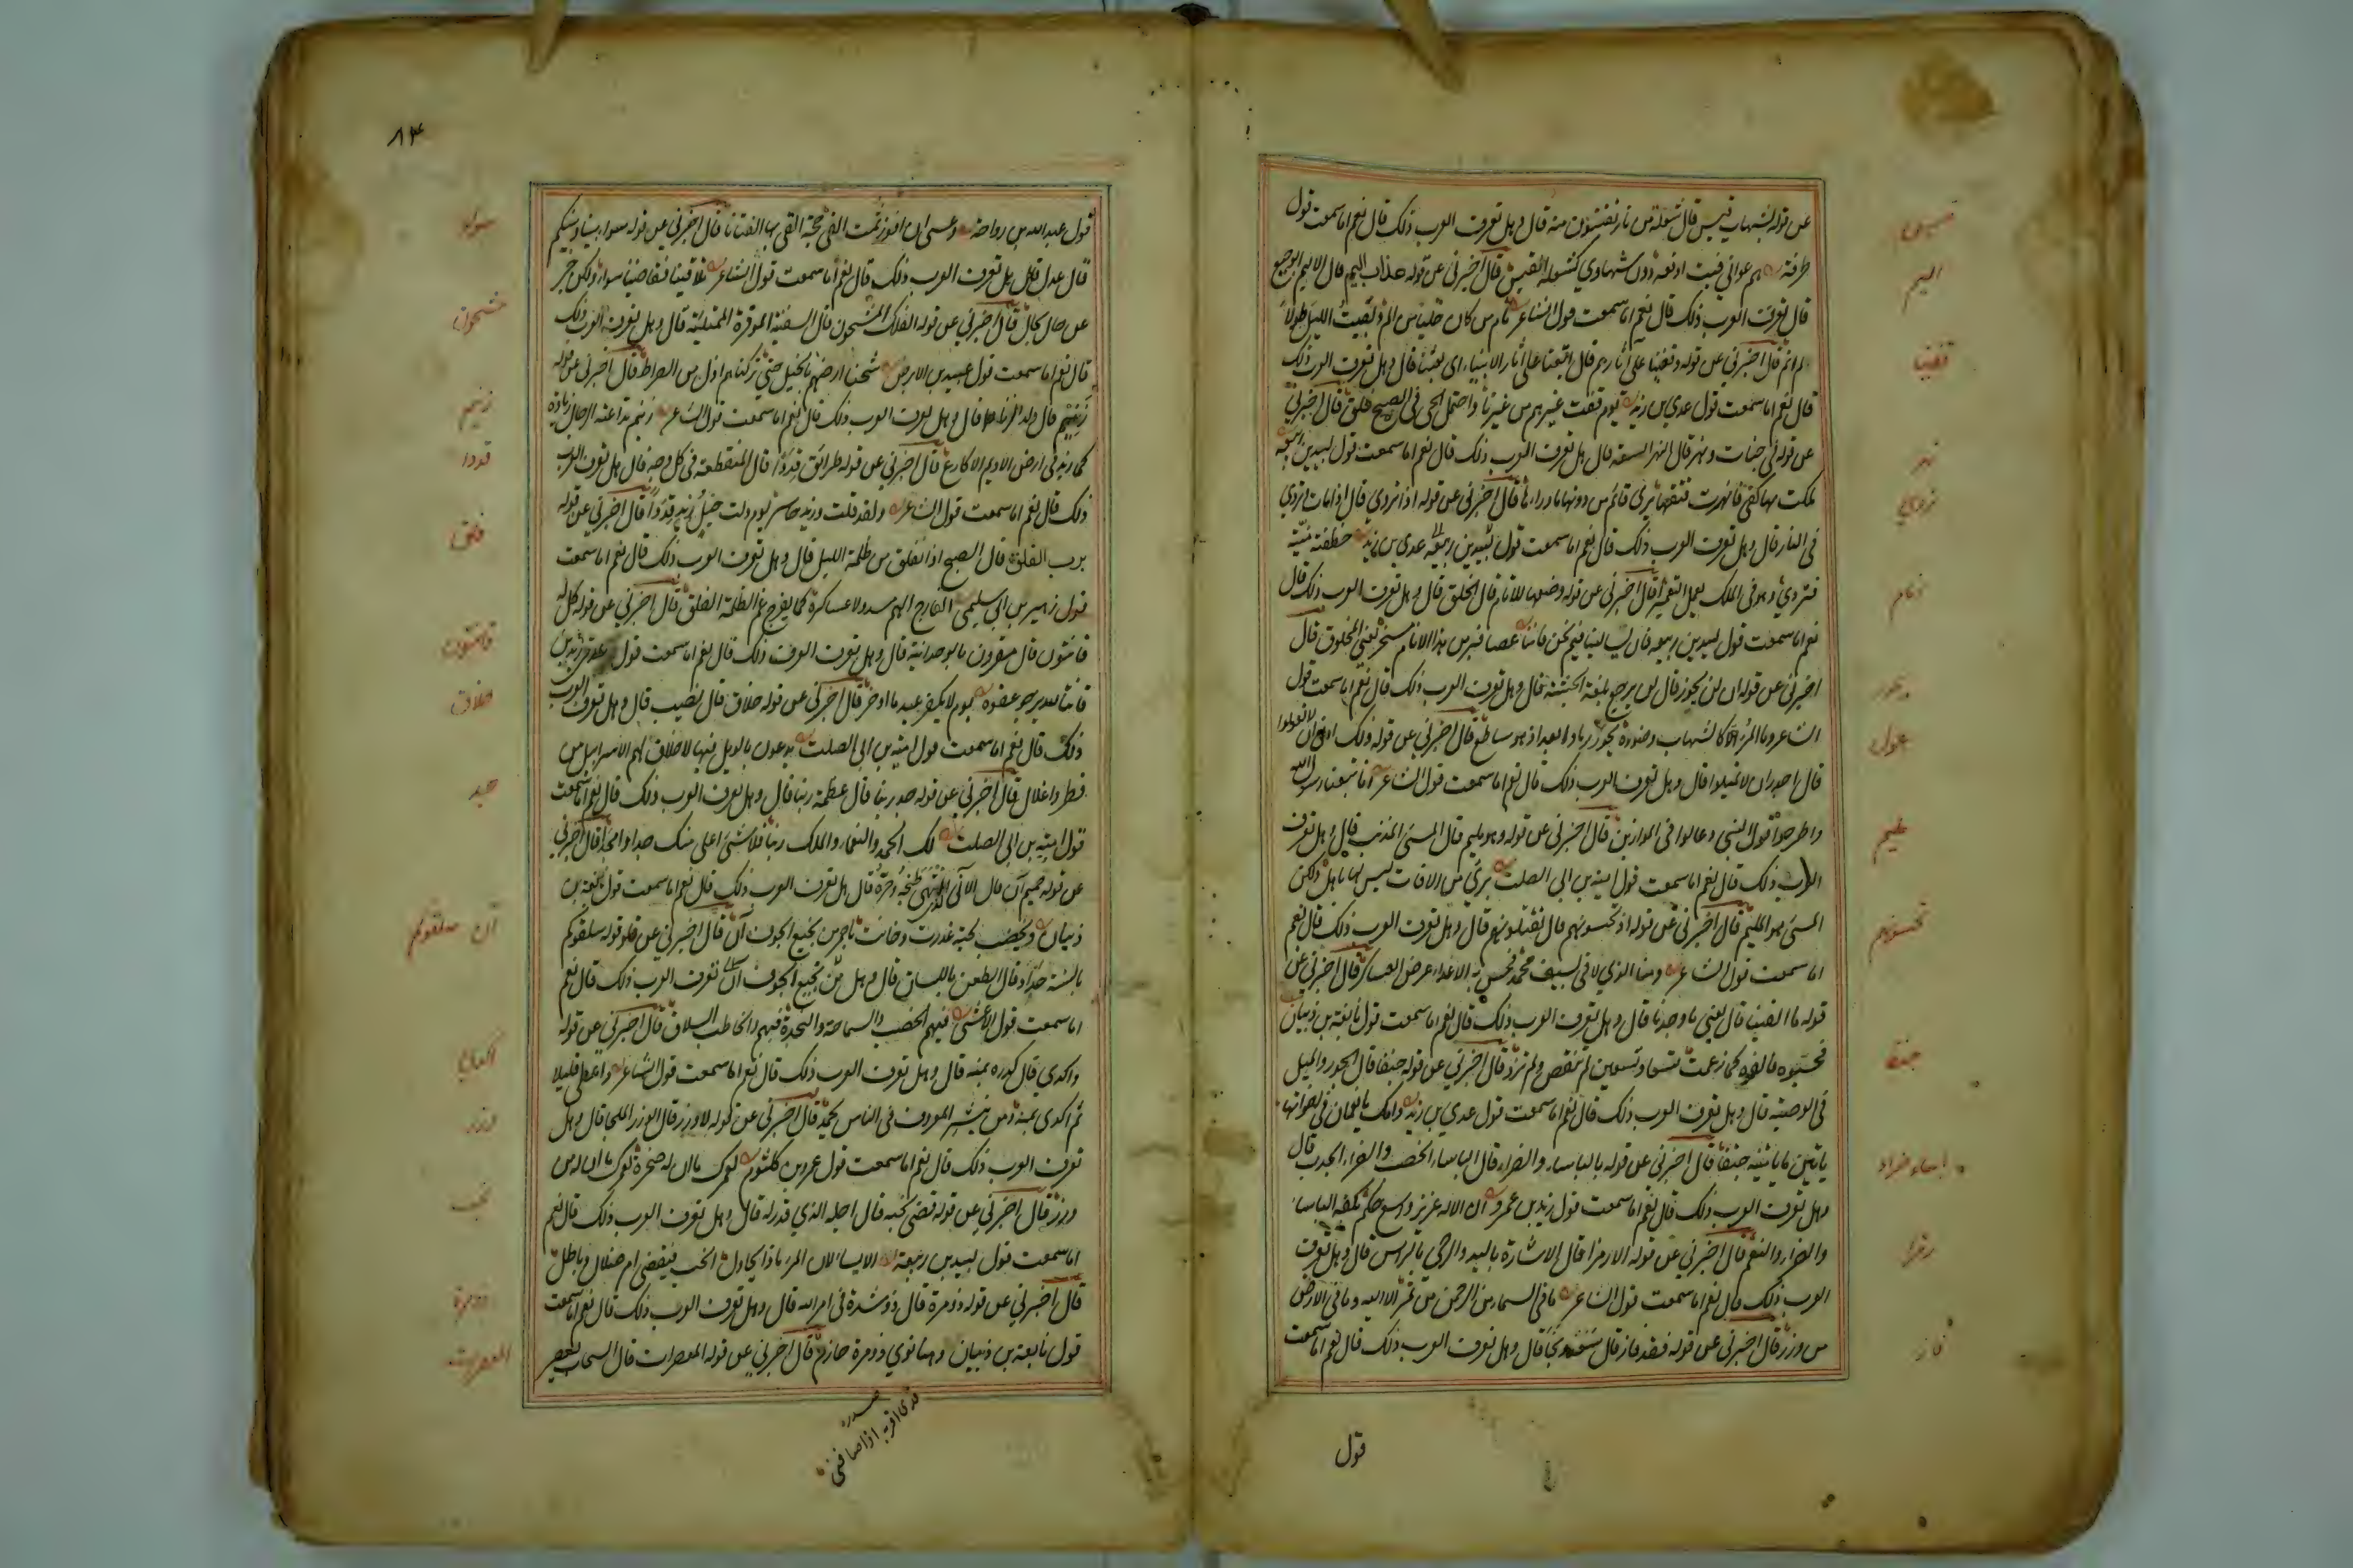 عن قوله بشهاب قبس قال شعلة من نار تقتبسون منه قال وهل تعرف العرب ذلك قال نعم اما سمعت قول
طرفة هم عراني فبت ادفعه دون سهادي كشعلة القبس قال اخبرني عن قوله عذاب اليم قال الاليم الوجيع
قال تعرف العرب ذلك قال نعم اما سمعت قول الشاعر نام من كان خليا من الم وبقيت الليل طولا
لم انم قال اخبرني عن قوله وقفينا على آثارهم قال اتبعنا على آثار الانبياء اى بعثنا قال وهل تعرف العرب ذلك
قال نعم اما سمعت قول عدي بن زيد يوم قفت عيرهم من عيرنا واحتمال الحى فى الصبح فلق قال اخبرني
عن قوله في جنات ونهر قال النهر السعة قال هل تعرف العرب ذلك قال نعم اما سمعت قول لبيد بن ربيعة
ملكت بها كفي فانهرت فتقها يرى قائم من دونها ما وراءها قال اخبرني عن قوله اذا تردي قال اذا مات تردي
فى النار قال وهل تعرف العرب ذلك قال نعم اما سمعت قول عدي بن زيد خطفته منية
فتردي وهو فى الملك يعمل التعمير قال اخبرني عن قوله وضعها للانام قال الخلق قال وهل تعرف العرب ذلك قال
نعم اما سمعت قول لبيد بن ربيعه فان تسالينا فيم نحن فاننا عصافير من هذا الانام مسحر يعني المخلوق قال
اخبرني عن قوله ان لن يحور قال لن يرجع بلغة الحبشة قال وهل تعرف العرب ذلك قال نعم اما سمعت قول
الشاعر وما المرء الا كالشهاب وضوءه يحور رمادا بعد اذ هو ساطع قال اخبرني عن قوله ذلك ادنى ان لا تعولوا
قال اجدر ان لا تميلوا قال وهل تعرف العرب ذلك قال نعم اما سمعت قول الشاعر انا تبعنا رسول الله
واطرحوا قول النبي وعالوا فى الموازين قال اخبرني عن قوله وهو مليم قال المسئ المذنب قال وهل تعرف
العرب ذلك قال نعم اما سمعت قول امية بن ابى الصلت برئ من الافات ليس لها باهل ولكن
المسئ هو المليم قال اخبرني عن قوله اذ تحسونهم قال تقتلونهم قال وهل تعرف العرب ذلك قال نعم
اما سمعت قول الشاعر ومنا الذي لاقى بسيف محمد فحس به الاعداء عرض العساكر قال اخبرني عن
قوله ما الفينا قال يعني ما وجدنا قال وهل تعرف العرب ذلك قال نعم اما سمعت قول نابغة بن ذبيان
فحسبوه فالفوه كما زعمت تسعا وتسعين لم تنقص ولم تزد قال اخبرني عن قوله جنفا قال الجور والميل
فى الوصية قال وهل تعرف العرب ذلك قال نعم اما سمعت قول عدي بن زيد وامك يا نعمان فى اخواتها
ياتين ما ياتينه جنفا قال اخبرني عن قوله بالباساء والضراء قال الباساء الخصب والضراء الجدب قال
وهل تعرف العرب ذلك قال نعم اما سمعت قول زيد بن عمرو ان الاله عزيز واسع حكم بكفه الباساء
والضراء والنعم قال اخبرني عن قوله الا رمزا قال الاشارة باليد والوحي بالراس قال وهل تعرف
العرب ذلك قال نعم اما سمعت قول الشاعر ما فى السماء من الرحمن من رمز الا اليه وما فى الارض
من وزر قال اخبرني عن قوله فقد فاز قال سعد ونجا قال وهل تعرف العرب ذلك قال نعم اما سمعت
قول
قبس
اليم
قفينا
نهر
تردي
انام
يحور
عول
مليم
تحسونهم
جنفا
باساء ضراء
رمزا
فاز
٨٤
قول عبد الله بن رواحة وعسى ان افوز ثمت القى حجة القى بها الفتانا قال اخبرني عن قوله سواء بيننا وبينكم
قال عدل قال هل تعرف العرب ذلك قال نعم اما سمعت قول الشاعر تلاقينا فقاضينا سواء ولكن جر
عن حال بحال قال اخبرني عن قوله الفلك المشحون قال السفينة الموقرة الممتلية قال وهل تعرف العرب ذلك
قال نعم اما سمعت قول عبيد بن الابرص شحنا ارضهم بالخيل حتى تركناهم اذل من الصراط قال اخبرني عن قوله
زنيم قال ولد الزنا قال وهل تعرف العرب ذلك قال نعم اما سمعت قول الشاعر زنيم تداعته الرجال زيادة
كما زيد فى ارض الاديم الاكارع قال اخبرني عن قوله طرائق قددا قال المنقطعة فى كل وجه قال هل تعرف العرب
ذلك قال نعم اما سمعت قول الشاعر ولقد قلت وزيد حاسر يوم ولت خيل زيد قددا قال اخبرني عن قوله
برب الفلق قال الصبح اذا انفلق من ظلمة الليل قال وهل تعرف العرب ذلك قال نعم اما سمعت
قول زهير بن ابى سلمى الفارج الهم مسدولا عساكره كما يفرج غم الظلمة الفلق قال اخبرني عن قوله كل له
قانتون قال مقرون بالوحدانية قال وهل تعرف العرب ذلك قال نعم اما سمعت قول عدي بن زيد
قانتا لله يرجو عفوه يوم لا يكفر عبد ما ادخر قال اخبرني عن قوله خلاق قال نصيب قال وهل تعرف العرب
ذلك قال نعم اما سمعت قول امية بن ابى الصلت يدعون بالويل فيها لا خلاق لهم الا سرابيل من
قطر واغلال قال اخبرني عن قوله جد ربنا قال عظمة ربنا قال وهل تعرف العرب ذلك قال نعم اما سمعت
قول امية بن ابى الصلت لك الحمد والنعماء والملك ربنا فلا شئ اعلى منك جدا وامجدا قال اخبرني
عن قوله حميم آن قال الآني الذي انتهى طبخه وحره قال هل تعرف العرب ذلك قال نعم اما سمعت قول نابغة بن
ذبيان ويخضب لحية غدرت وخانت باحمر من نجيع الجوف آن قال اخبرني عن قوله سلقوكم
بالسنة حداد قال الطعن باللسان قال وهل تعرف العرب ذلك قال نعم
اما سمعت قول الاعشى فيهم الخصب والسماحة والنجدة فيهم والخاطب السلاق قال اخبرني عن قوله
واكدي قال كدره بمنه قال وهل تعرف العرب ذلك قال نعم اما سمعت قول الشاعر واعطى قليلا
ثم اكدى بمنه ومن ينشر المعروف فى الناس يحمد قال اخبرني عن قوله لا وزر قال الوزر الملجا قال وهل
تعرف العرب ذلك قال نعم اما سمعت قول عمرو بن كلثوم لعمرك ما ان له صخرة لعمرك ما ان له من
وزر قال اخبرني عن قوله قضى نحبه قال اجله الذي قدر له قال وهل تعرف العرب ذلك قال نعم
اما سمعت قول لبيد بن ربيعة الا تسالان المرء ماذا يحاول انحب فيقضى ام ضلال وباطل
قال اخبرني عن قوله ذو مرة قال ذو شدة فى امر الله قال وهل تعرف العرب ذلك قال نعم اما سمعت
قول نابغة بن ذبيان وهنا قوي ذو مرة حازم قال اخبرني عن قوله المعصرات قال السحاب يعصر
سواء
مشحون
زنيم
قددا
فلق
قانتون
خلاق
جد
آن سلقوكم
اكدى
وزر
نحب
ذو مرة
المعصرات